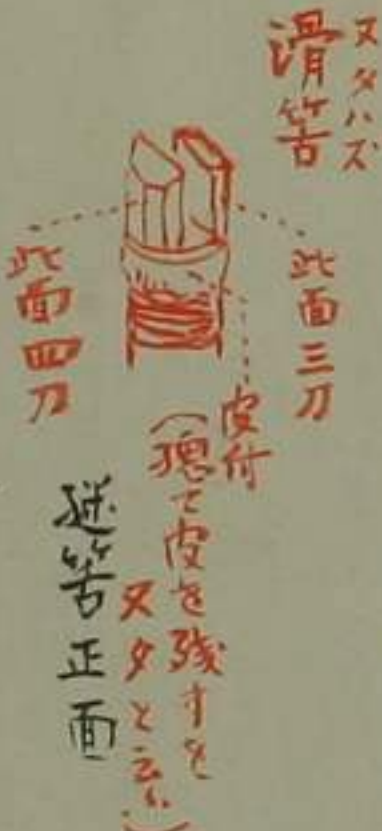 ヌタハズ
滑筈
此面三刀
此面四刀
皮付
(総て皮を残すを
ヌタと云ふ)
筈正面